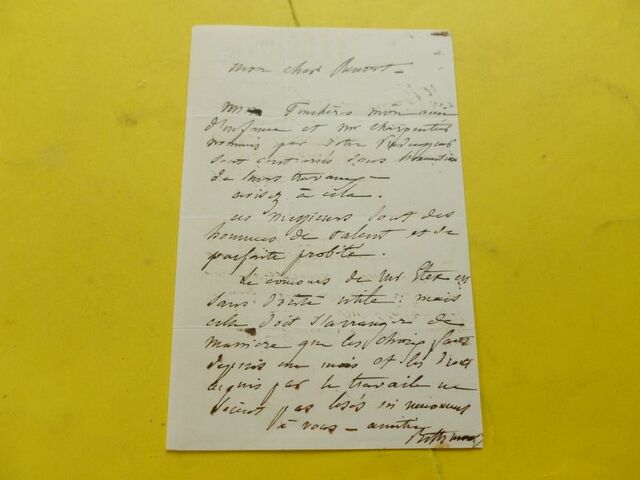 mon cher
mon ami
d'enfance et mr charpentier
nommés par votre
sont dans
de leurs travaux
avisez à cela.
ces messieurs sont des
hommes de talent et de
parfaite probité.
Le concours de Mr Etex est
sans doute utile : mais
cela doit s'arranger de
manière que les choix faits
depuis un mois et les droits
acquis par le travail ne
soient pas lésés ni
à vous - amitié